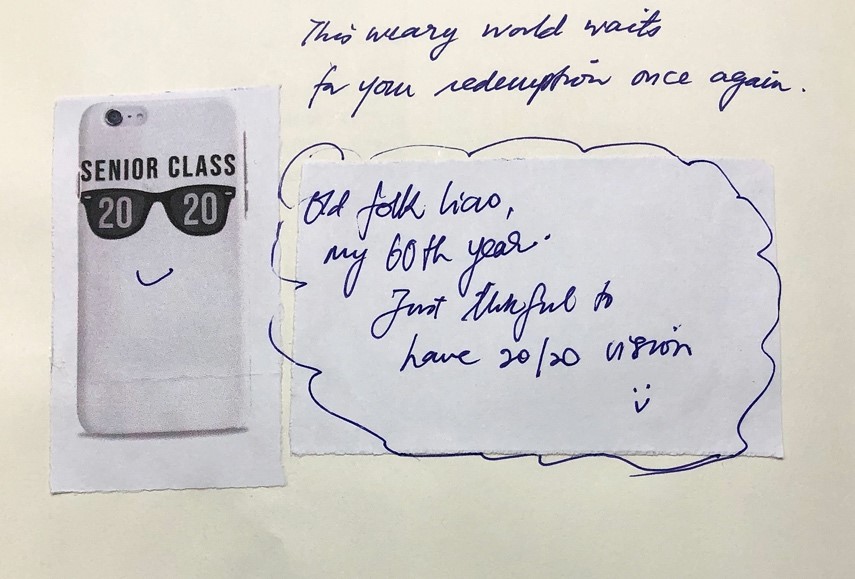 This weary world waits
for your redemption once again.
SENIOR CLASS
20 20
Old folk liao,
my 60th year.
Just thkful to
have 20/20 vision